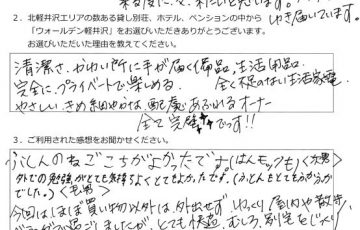 ゆき届いています。
2. 北軽井沢エリアの数ある貸し別荘、ホテル、ペンションの中から
「ウォールデン軽井沢」をお選びいただきありがとうございます。
お選びいただいた理由を教えてください。
清潔さ、かゆい所に手が届く備品、生活用品
完全にプライベートで楽しめる。 全く不足のない生活家電
やさしい きめ細やかな配慮あふれるオーナー
全て完璧です!!
3. ご利用された感想をお聞かせください。
ふとんのねごこちがよかったです(はんモックも)<次男>
外での勉強がとても気持ちよくとてもよかったです。(ふとんもとてもふかふか
でした。)
今回はほぼ買い物以外は外出せず ゆっくり屋内や敷地
とても快適。むしろ、別宅をじっくり